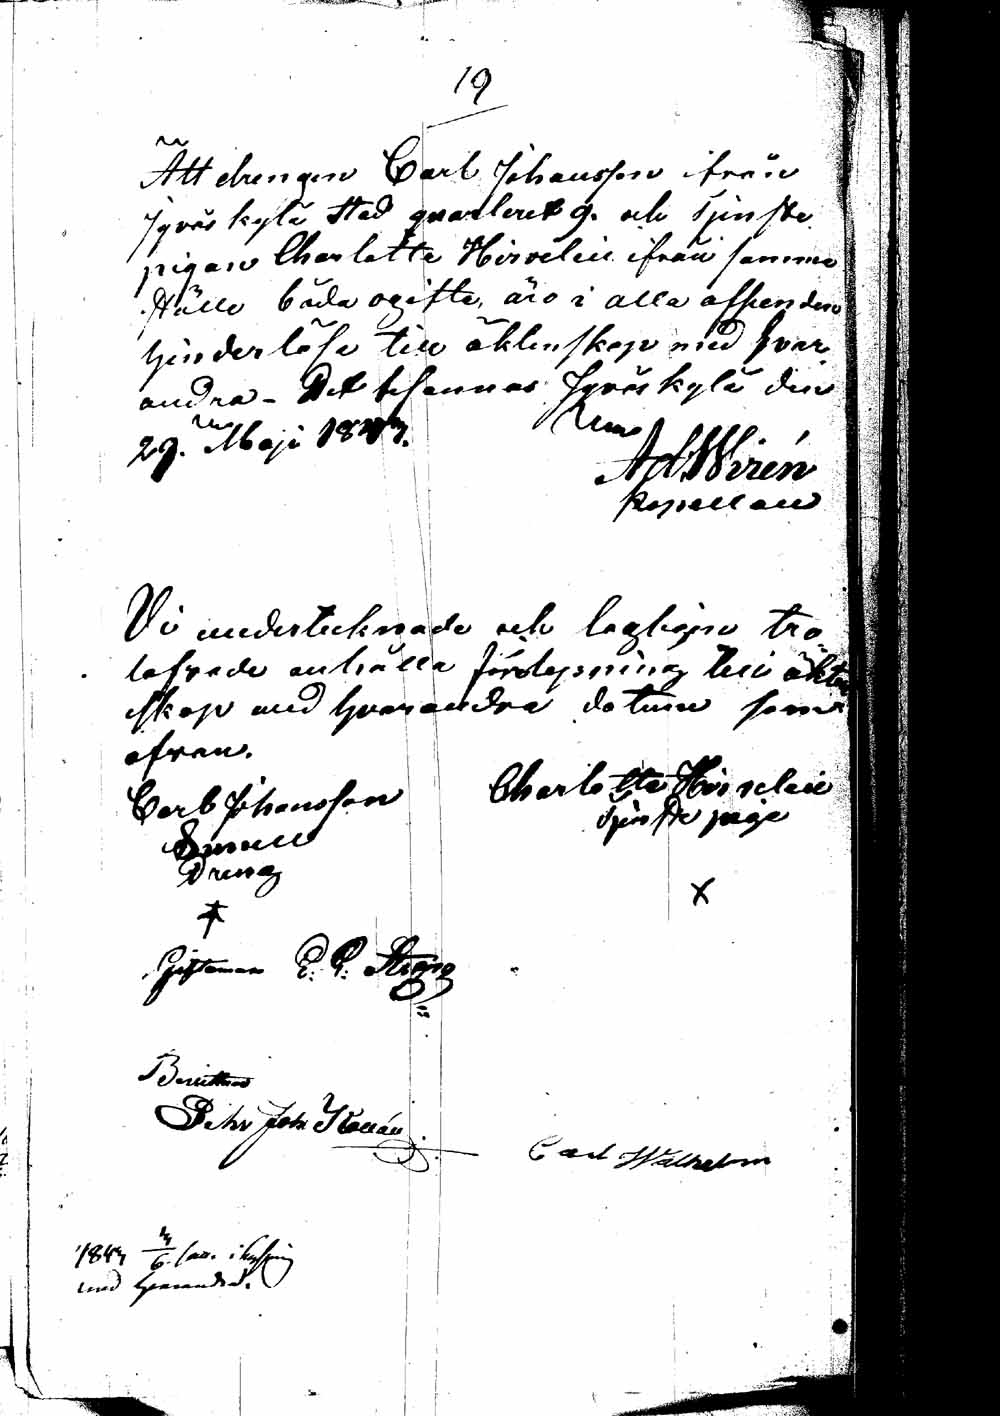 19
Att drengen Carl Johansson ifrån
Jyväskylä Stad qvarteret 9. och tjenste
pigan Charlotta Hirvelin ifrån samma
Ställe båda ogifte, äro i alla afseenden
hinderlöse till äktenskap med hvar
andra - Det bekännas Jyväskylä den
29. Maji 18
Ad. Wirén
Kapellan
Vi undertecknade och lagligen tro
lofvade anhålla lysning till äkten
skap med hvarandra datum som
ofvan.
Carl Johansson
Charlotta Hirvelin
Dreng
tjenste piga
x
Giftoman E. G.
Pehr Joh
Carl Wilhelm
6
med hvarandra.